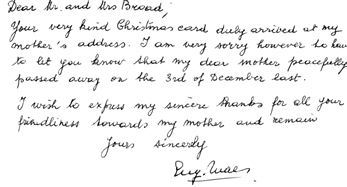 Dear Mr. and Mrs Broad,
Your very kind Christmas card duly arrived at my
mother's address. I am very sorry however to have
to let you know that my dear mother peacefully
passed away on the 3rd of December last.
I wish to express my sincere thanks for all your
friendliness towards my mother and remain
Yours sincerely